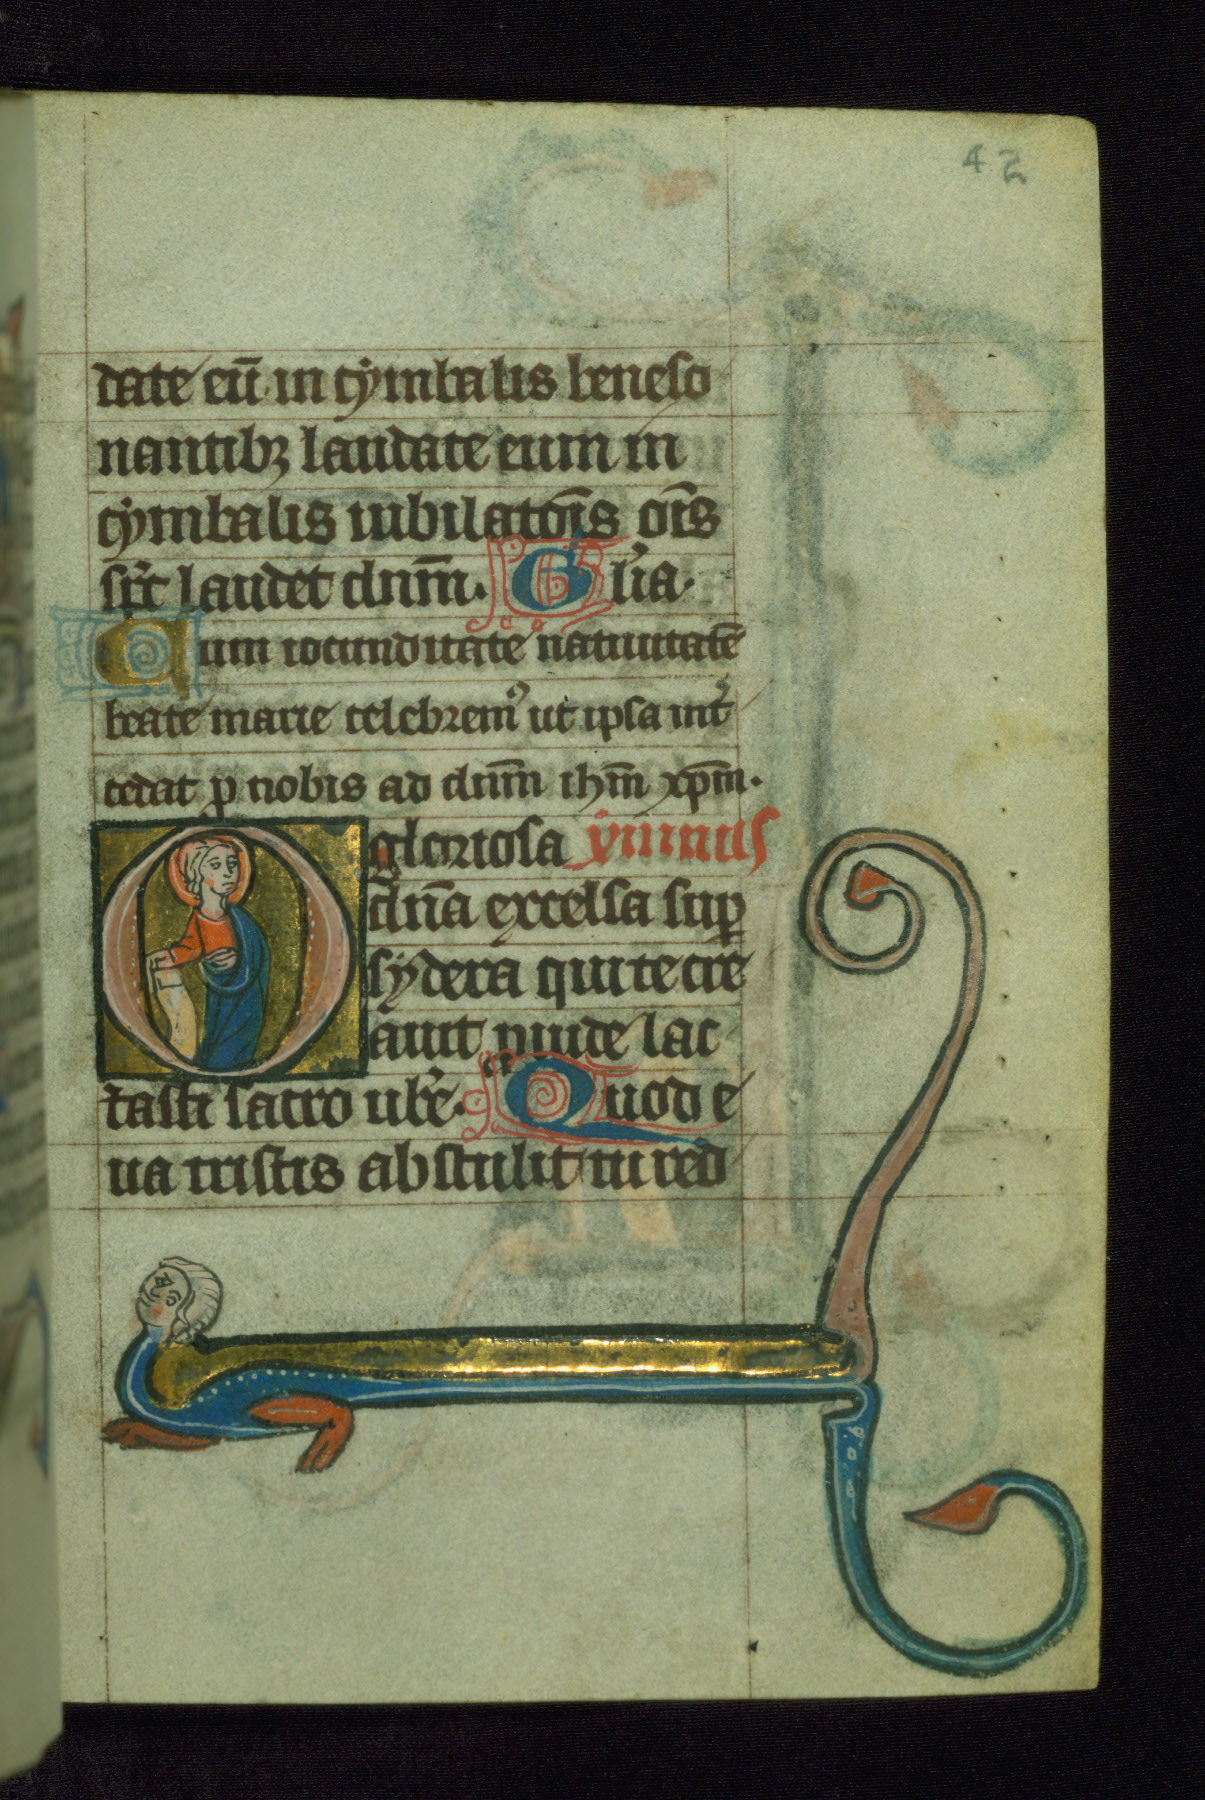 42
date eū in cẏmbalis beneso
nantibꝫ laudate eum in
cẏmbalis iubilatōis oīs
sp̄c laudet dn̄m. Gl'ia.
Cum iocunditate natiuitatē
beate marie celebrem᾽ ut ipsa int̄
cedat ꝓ nobis ad dn̄m ihm̄ xp̄m.
O gloriosa ymnus
dn̄a excelsa suꝑ
sẏdera qui te cre
auit ꝓuide lac
tasti sacro ub'e. Quod e
ua tristis abstulit tu red